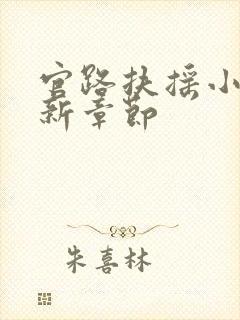 官路扶摇小
新章节
朱喜林